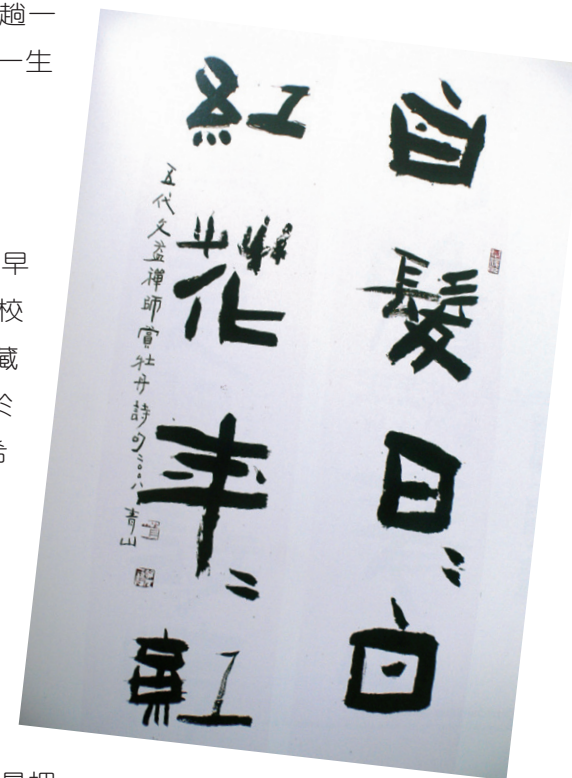 趟一
一生
早
校
藏
於
白髮日〻白
紅花年〻紅
五代文益禪師賞牡丹詩句二〇〇八 青山